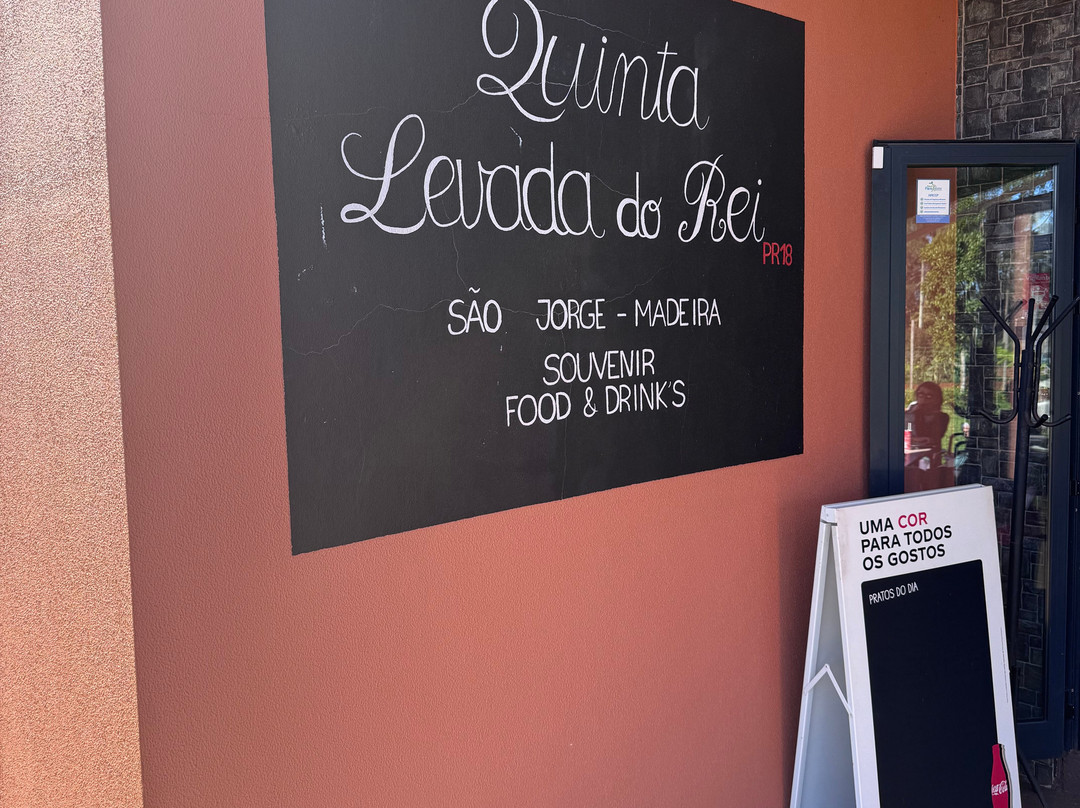 Quinta
Levada do Rei
PR18
SÃO JORGE - MADEIRA
SOUVENIR
FOOD & DRINK'S
UMA COR
PARA TODOS
OS GOSTOS
PRATOS DO DIA
Coca-Cola